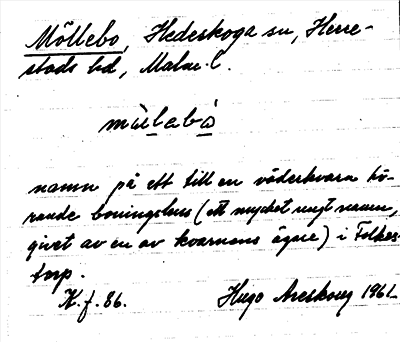 Möllebo, Hedeskoga sn, Herre-
stads hd, Malm. l.
mùlebò
namn på ett till en väderkvarn hö-
rande boningshus (ett mycket ungt namn,
givet av en av kvarnens ägare) i Folkes-
torp.
K. f. 86. Hugo Areskoug 1961